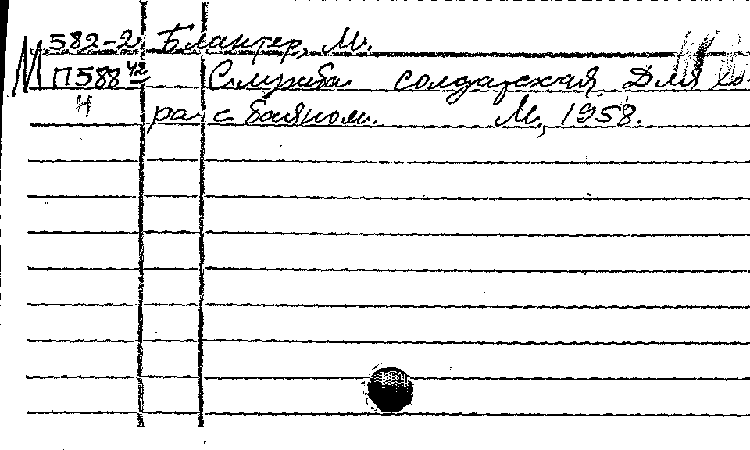 582-2 Блантер, М.
М П588 Служба солдатская. Для хо-
Н ра с баяном. М., 1958.